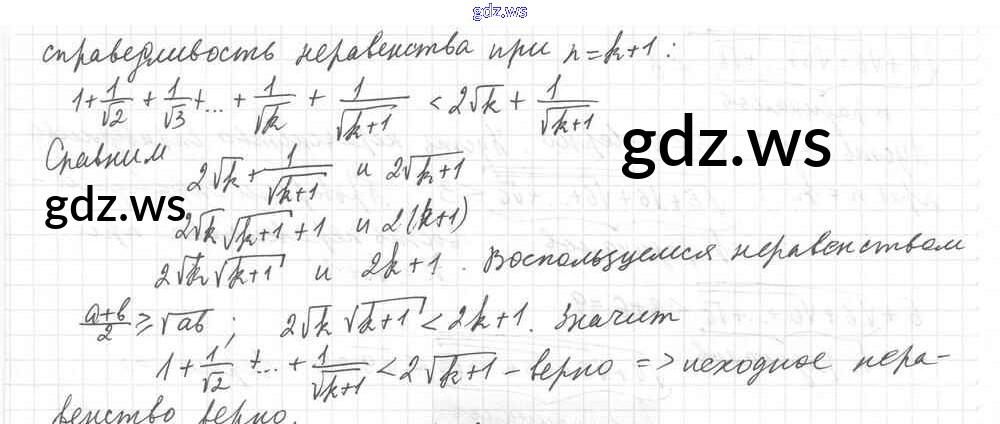 gdz.ws
справедливость неравенства при n=k+1:
1+1/√2 + 1/√3 +...+ 1/√k + 1/√(k+1) < 2√k + 1/√(k+1)
gdz.ws
Сравним
2√k + 1/√(k+1) и 2√(k+1)
gdz.ws
2√k √(k+1) + 1 и 2(k+1)
2√k √(k+1) и 2k+1. Воспользуемся неравенством
(a+b)/2 ≥ √ab; 2√k √(k+1) < 2k+1. Значит
1+1/√2 +...+ 1/√(k+1) < 2√(k+1) - верно => исходное нера-
венство верно.